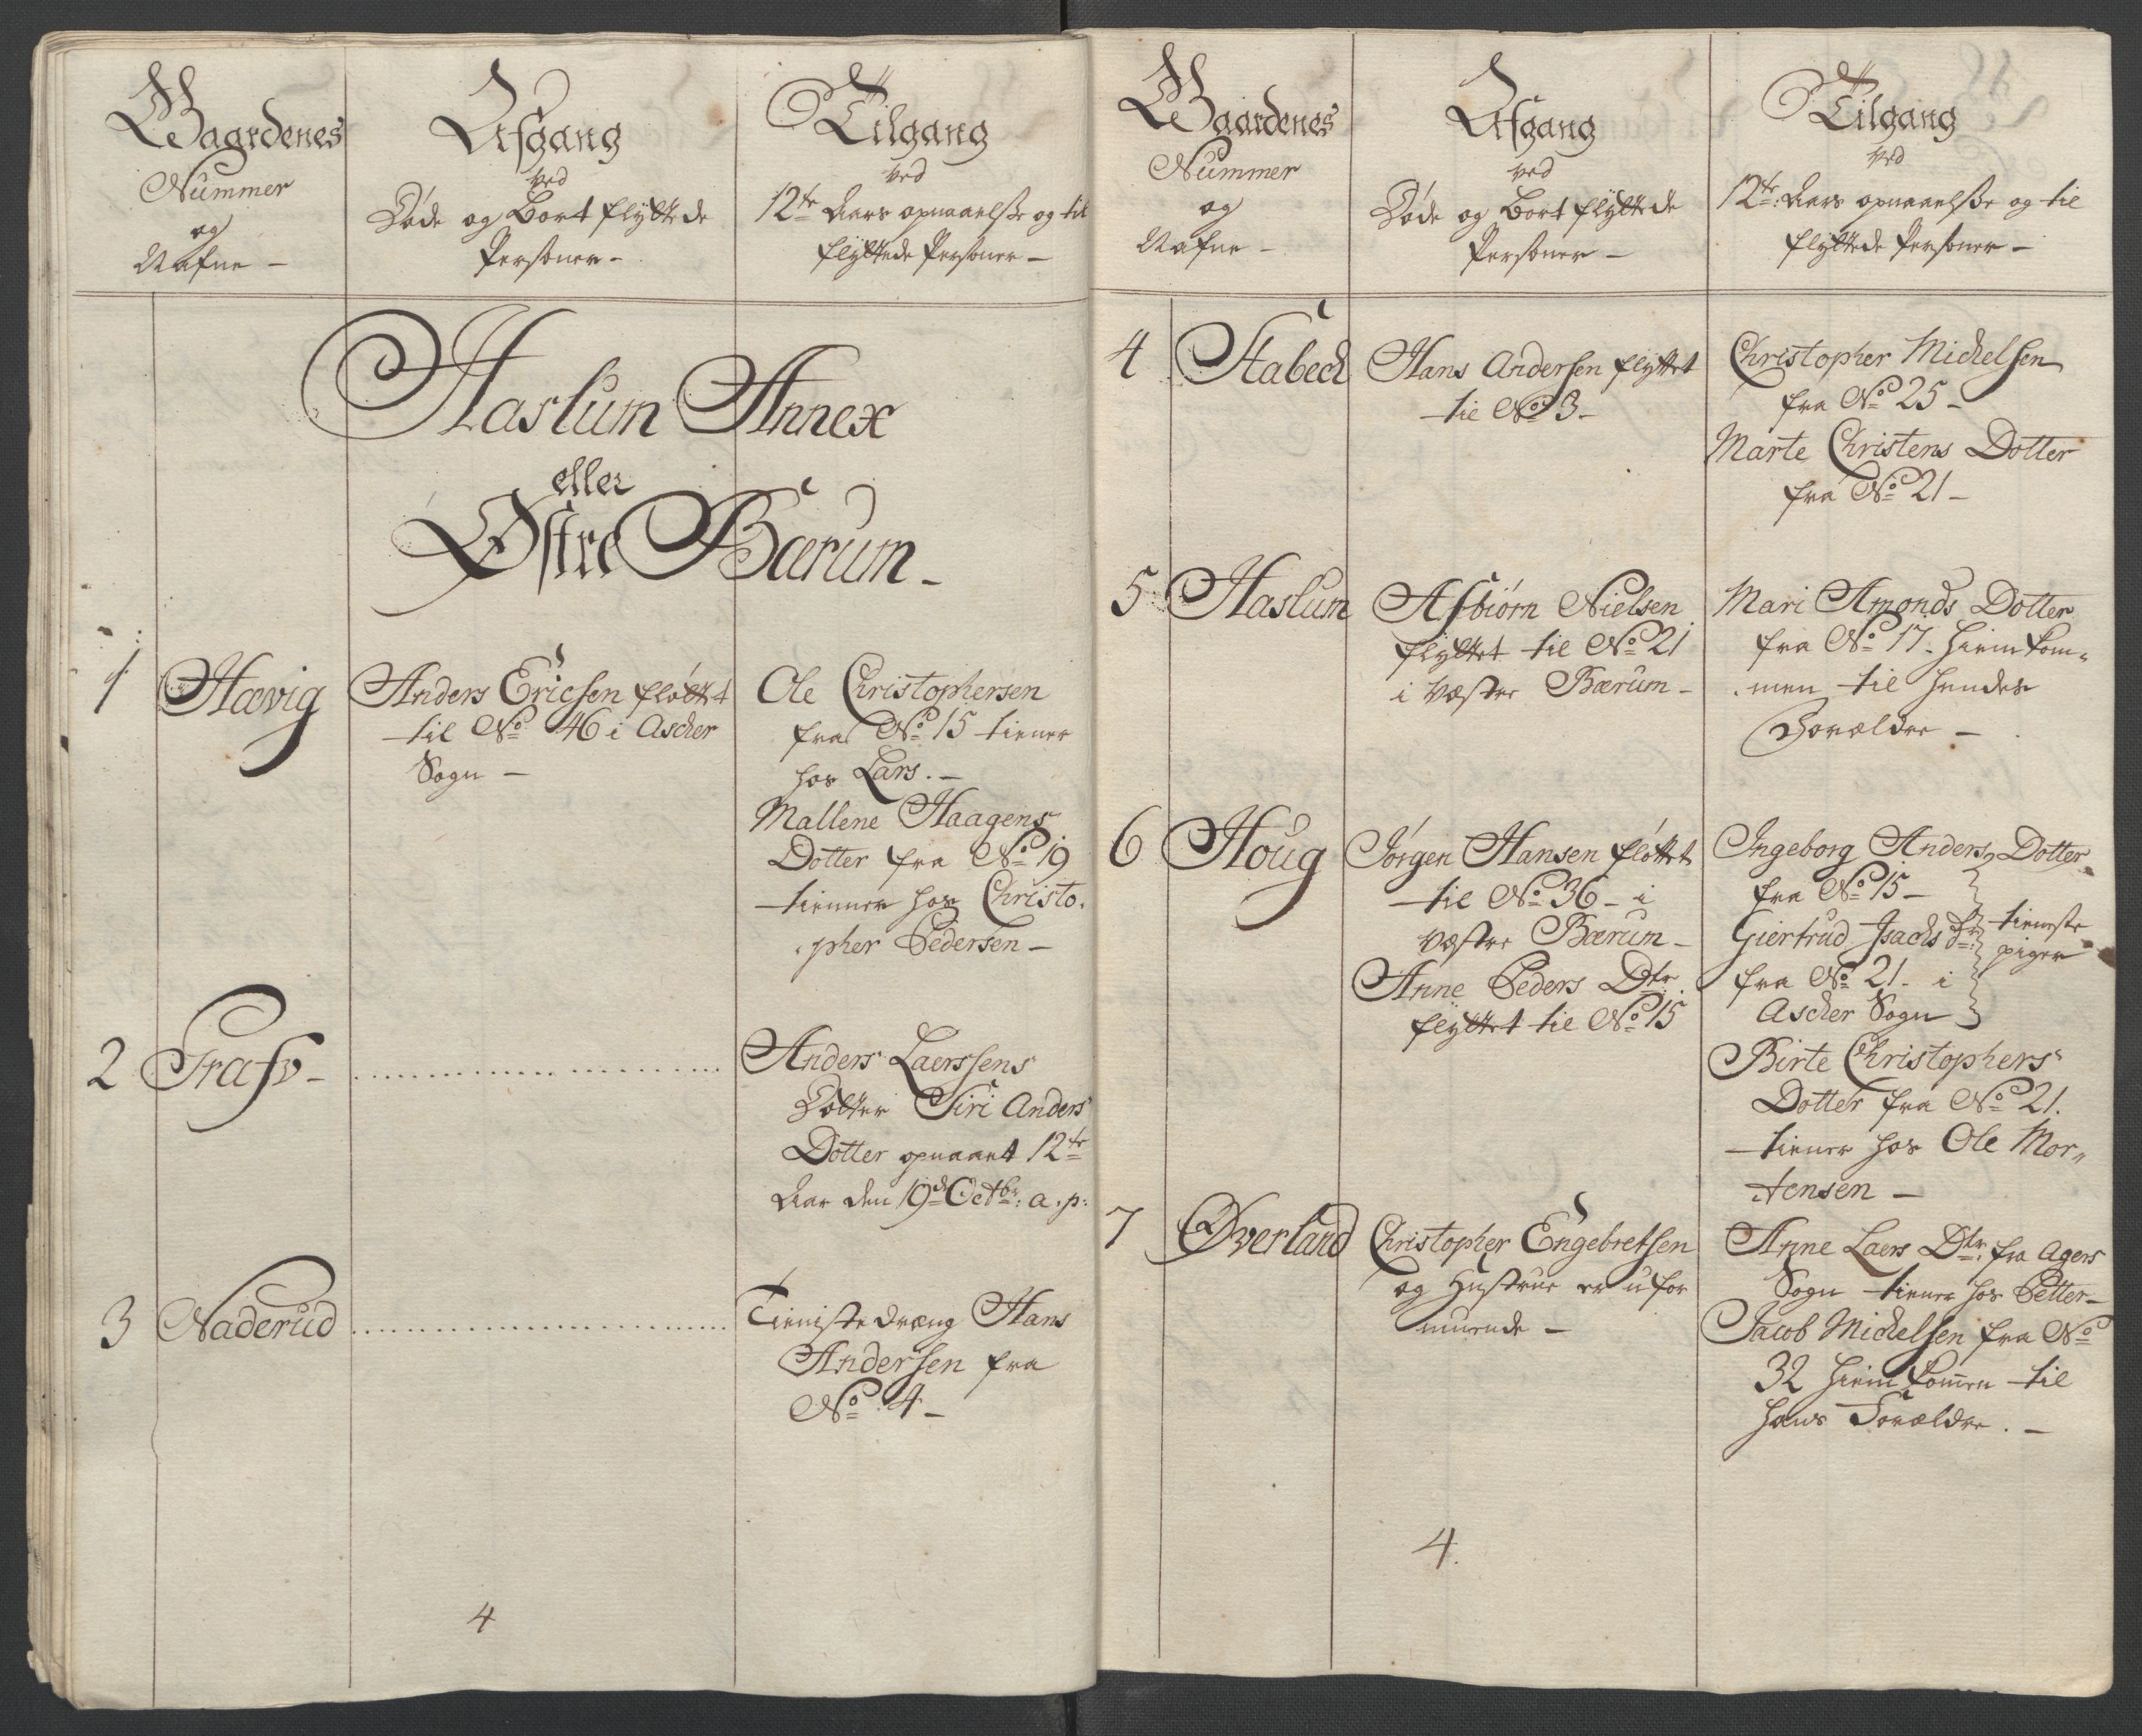 Gaardenes
Nummer
og
Nafne -
Afgang
ved
Døde og Bort flyttede
Personer -
Tilgang
ved
12te Aars opnaaelsse og til
flyttede Personer -
Haslum Annex
eller
Østre Bærum -
1 Høvig
Anders Ericsen fløttet
til No 46 i Ascher
Sogn -
Ole Christophersen
fra No 15 tiener
hos Lars. -
Mallene Haagens
Dotter fra No 19
tienner hos Christo,
,pher Pedersen -
2 Grafv -
Anders Laerssens
Dotter Siri Anders
Dotter opnaaet 12te
Aar den 19de Octbr: a. p:
3 Naderud
Tieniste dræng Hans
Andersen fra
No 4 -
4
Gaardenes
Nummer
og
Nafne -
Afgang
ved
Døde og Bort flyttede
Personer -
Tilgang
ved
12te Aars opnaaelsse og til
flyttede Personer -
4 Stabech
Hans Andersen flyttet
til No 3 -
Christopher Michelsen
fra No 25 -
Marte Christens Dotter
fra No 21 -
5 Haslum
Asbiørn Nielsen
flyttet til No 21
i Væstre Bærum -
Mari Amonds Dotter
fra No 17. hiemkom„
men til hendes
Forældre -
6 Houg
Jørgen Hansen fløttet
til No 36 - i
Væstre Bærum -
Anne Peders Dtr
flyttet til No 15
Ingeborg Anders Dotter
fra No 15 -
Giertrud Isachs Dr:
fra No 21. i
Ascher Sogn
tieneste
piger
Birte Christophers
Dotter fra No 21.
tiener hos Ole Mor„
tensen -
7 Øverland
Christopher Engebretsen
og Hustrue er ufor
muende -
Anne Laers Dtr: fra Agers
Sogn tiener hos Petter -
Jacob Michelsen fra No
32 hiem kommen til
hans Forældre. -
4.